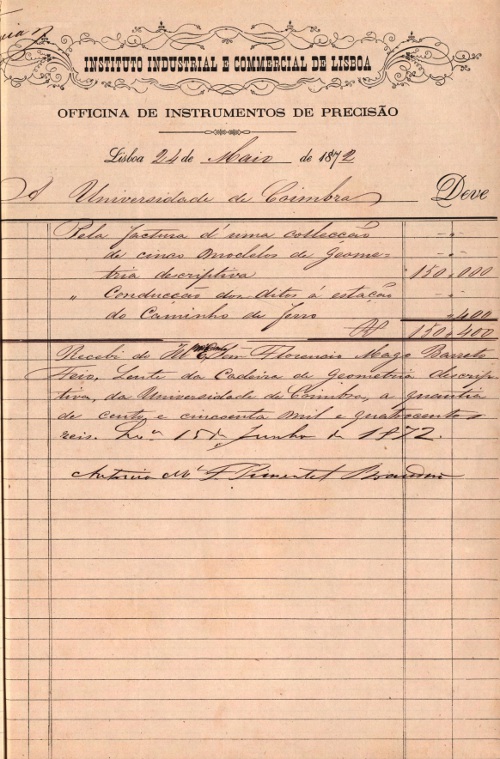 INSTITUTO INDUSTRIAL E COMMERCIAL DE LISBOA
OFFICINA DE INSTRUMENTOS DE PRECISÃO
Lisboa 24 de Maio de 1872
A Universidade de Coimbra Deve
Pela factura d'uma collecção
de cinco modelos de Geome-
tria descriptiva 150,000
" Conducção dos ditos á estação
do Caminho de ferro 400
150,400
Recebi do Florencio Mago Barreto
Feio, Lente da Cadeira de Geometria descrip-
tiva, da Universidade de Coimbra, a quantia
de cento e cincoenta mil e quatrocentos
reis. Lxª 15 de Junho de 1872.
Antonio Mª F. Pimentel Brandão